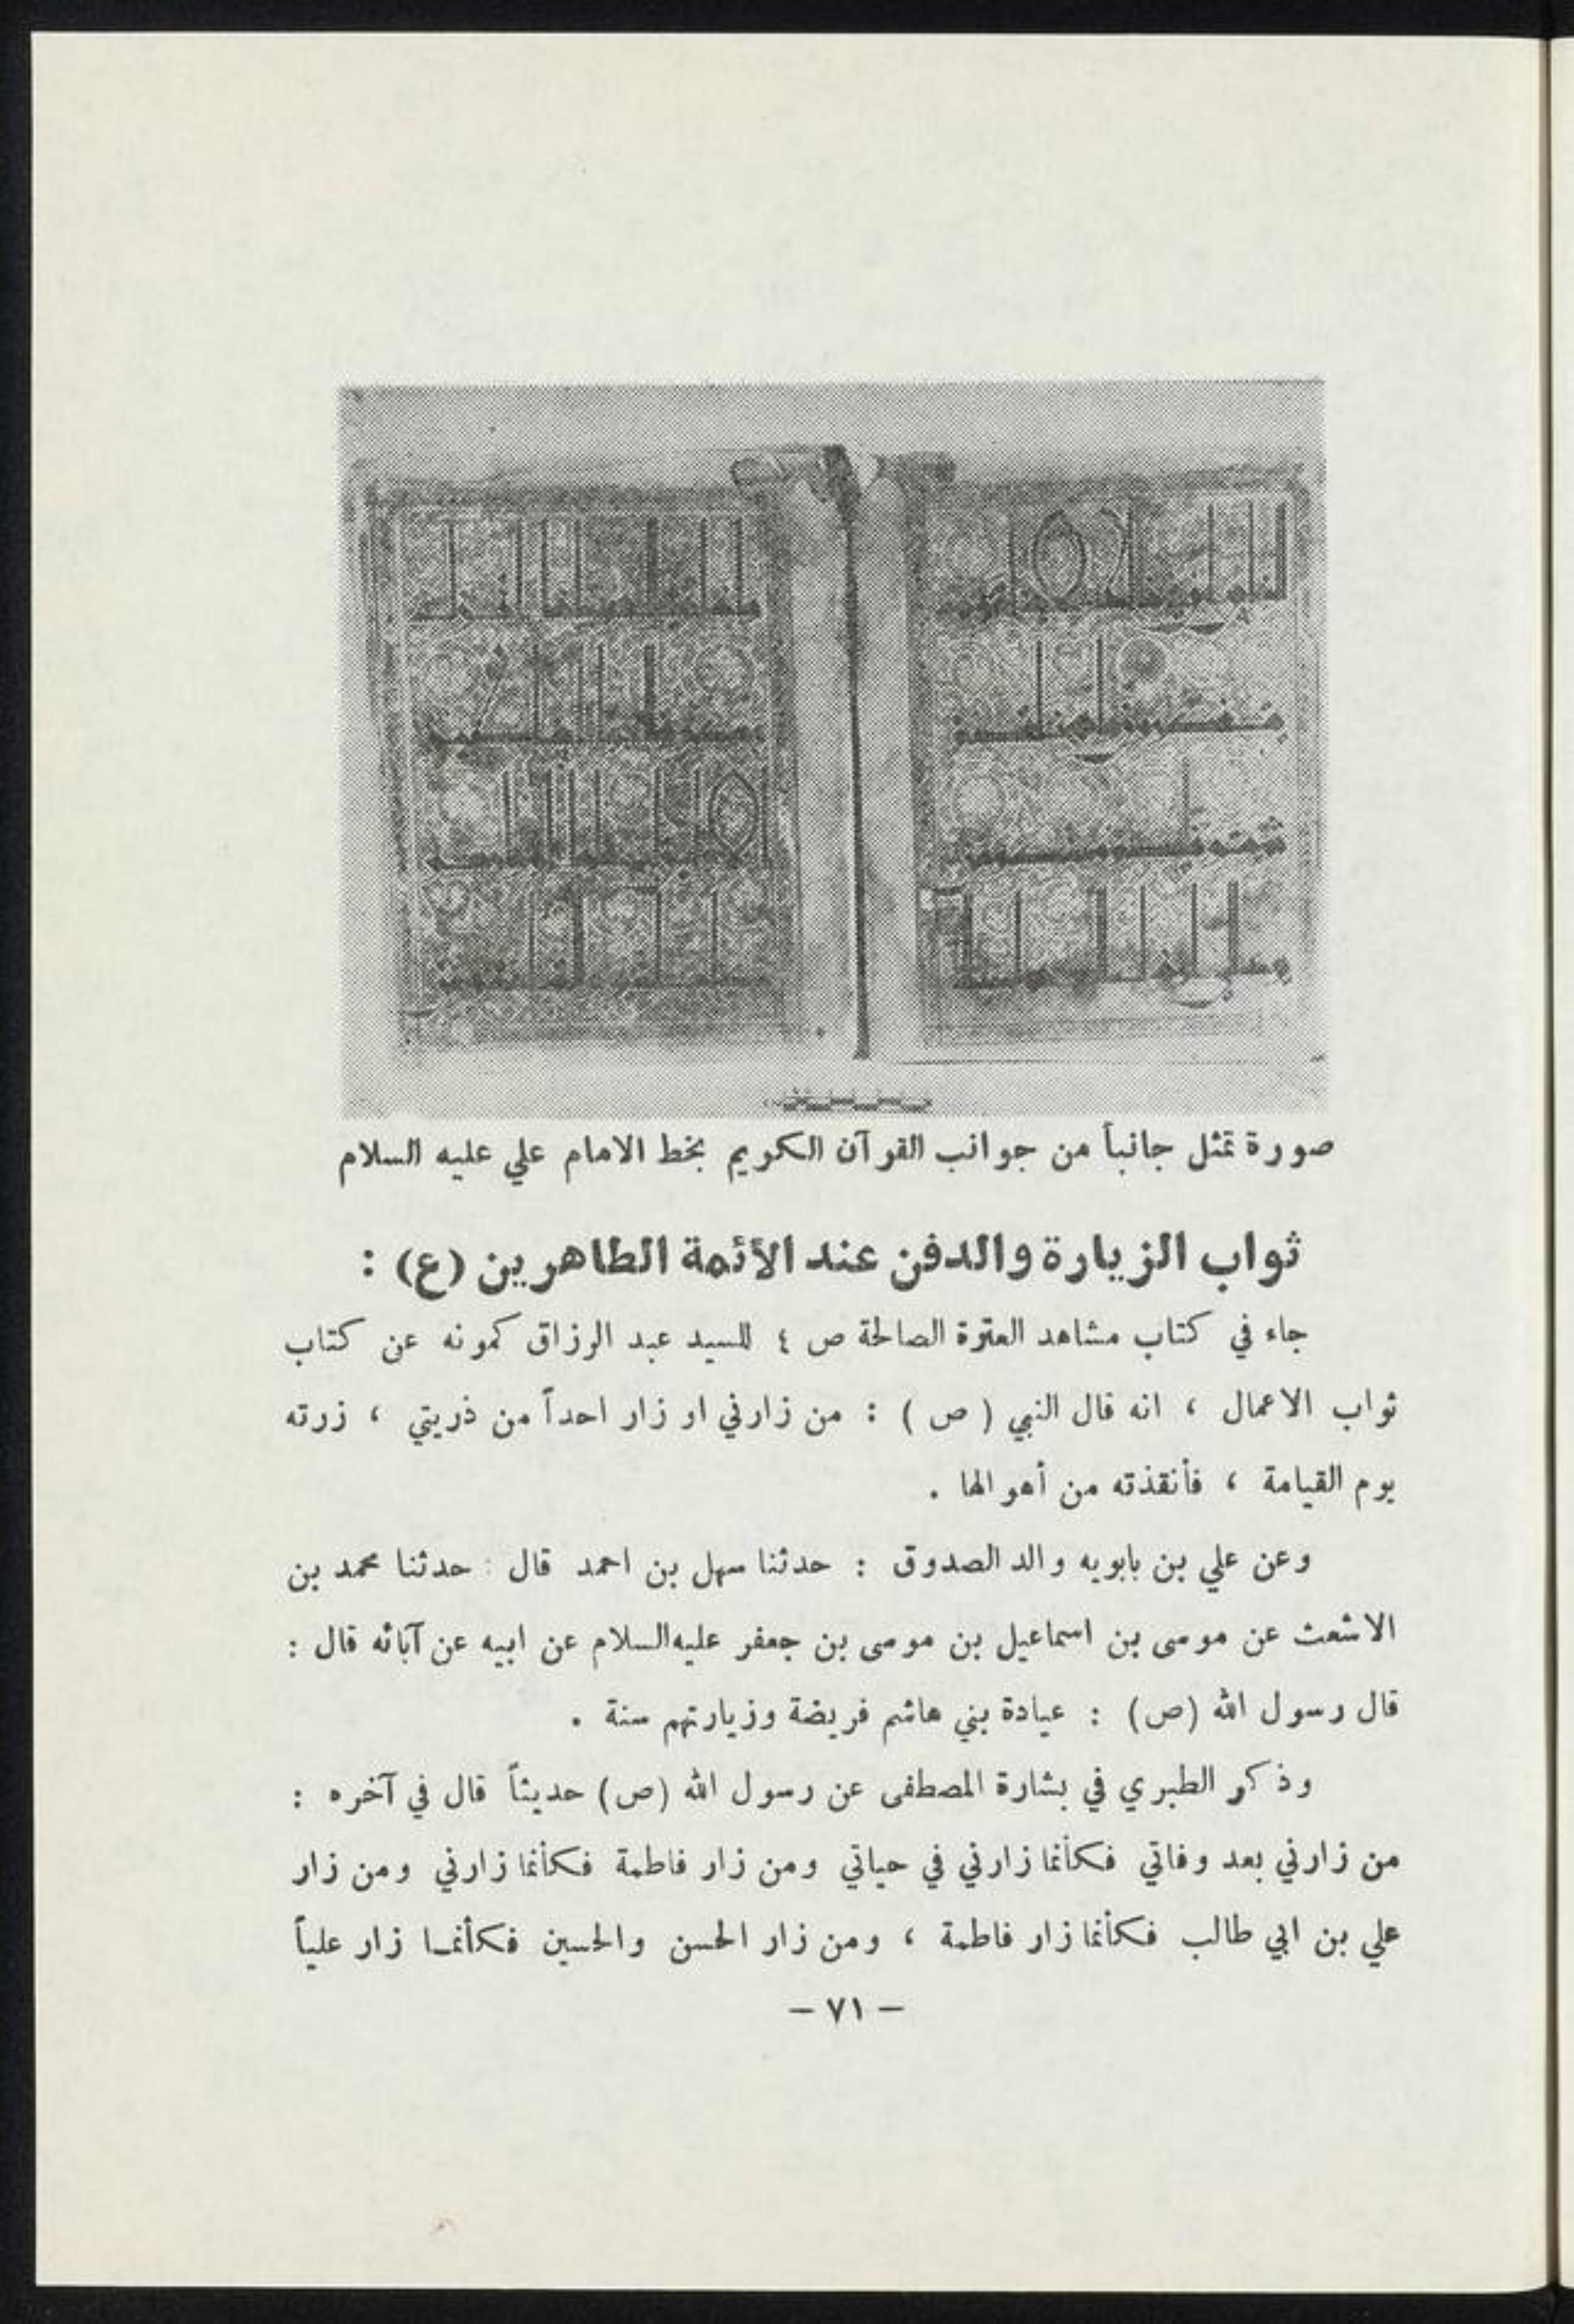 صورة تمثل جانباً من جوانب القرآن الكريم بخط الامام علي عليه السلام
ثواب الزيارة والدفن عند الأئمة الطاهرين (ع) :
جاء في كتاب مشاهد العترة الصالحة ص ٤ للسيد عبد الرزاق كمونه عن كتاب
ثواب الاعمال ، انه قال النبي ( ص ) : من زارني او زار احداً من ذريتي ، زرته
يوم القيامة ، فأنقذته من أهوالها .
وعن علي بن بابويه والد الصدوق : حدثنا سهل بن احمد قال : حدثنا محمد بن
الاشعث عن موسى بن اسماعيل بن موسى بن جعفر عليه السلام عن ابيه عن آبائه قال :
قال رسول الله (ص) : عيادة بني هاشم فريضة وزيارتهم سنة .
وذكر الطبري في بشارة المصطفى عن رسول الله (ص) حديثاً قال في آخره :
من زارني بعد وفاتي فكأنما زارني في حياتي ومن زار فاطمة فكأنما زارني ومن زار
علي بن ابي طالب فكأنما زار فاطمة ، ومن زار الحسن والحسين فكأنما زار علياً
– ٧١ –